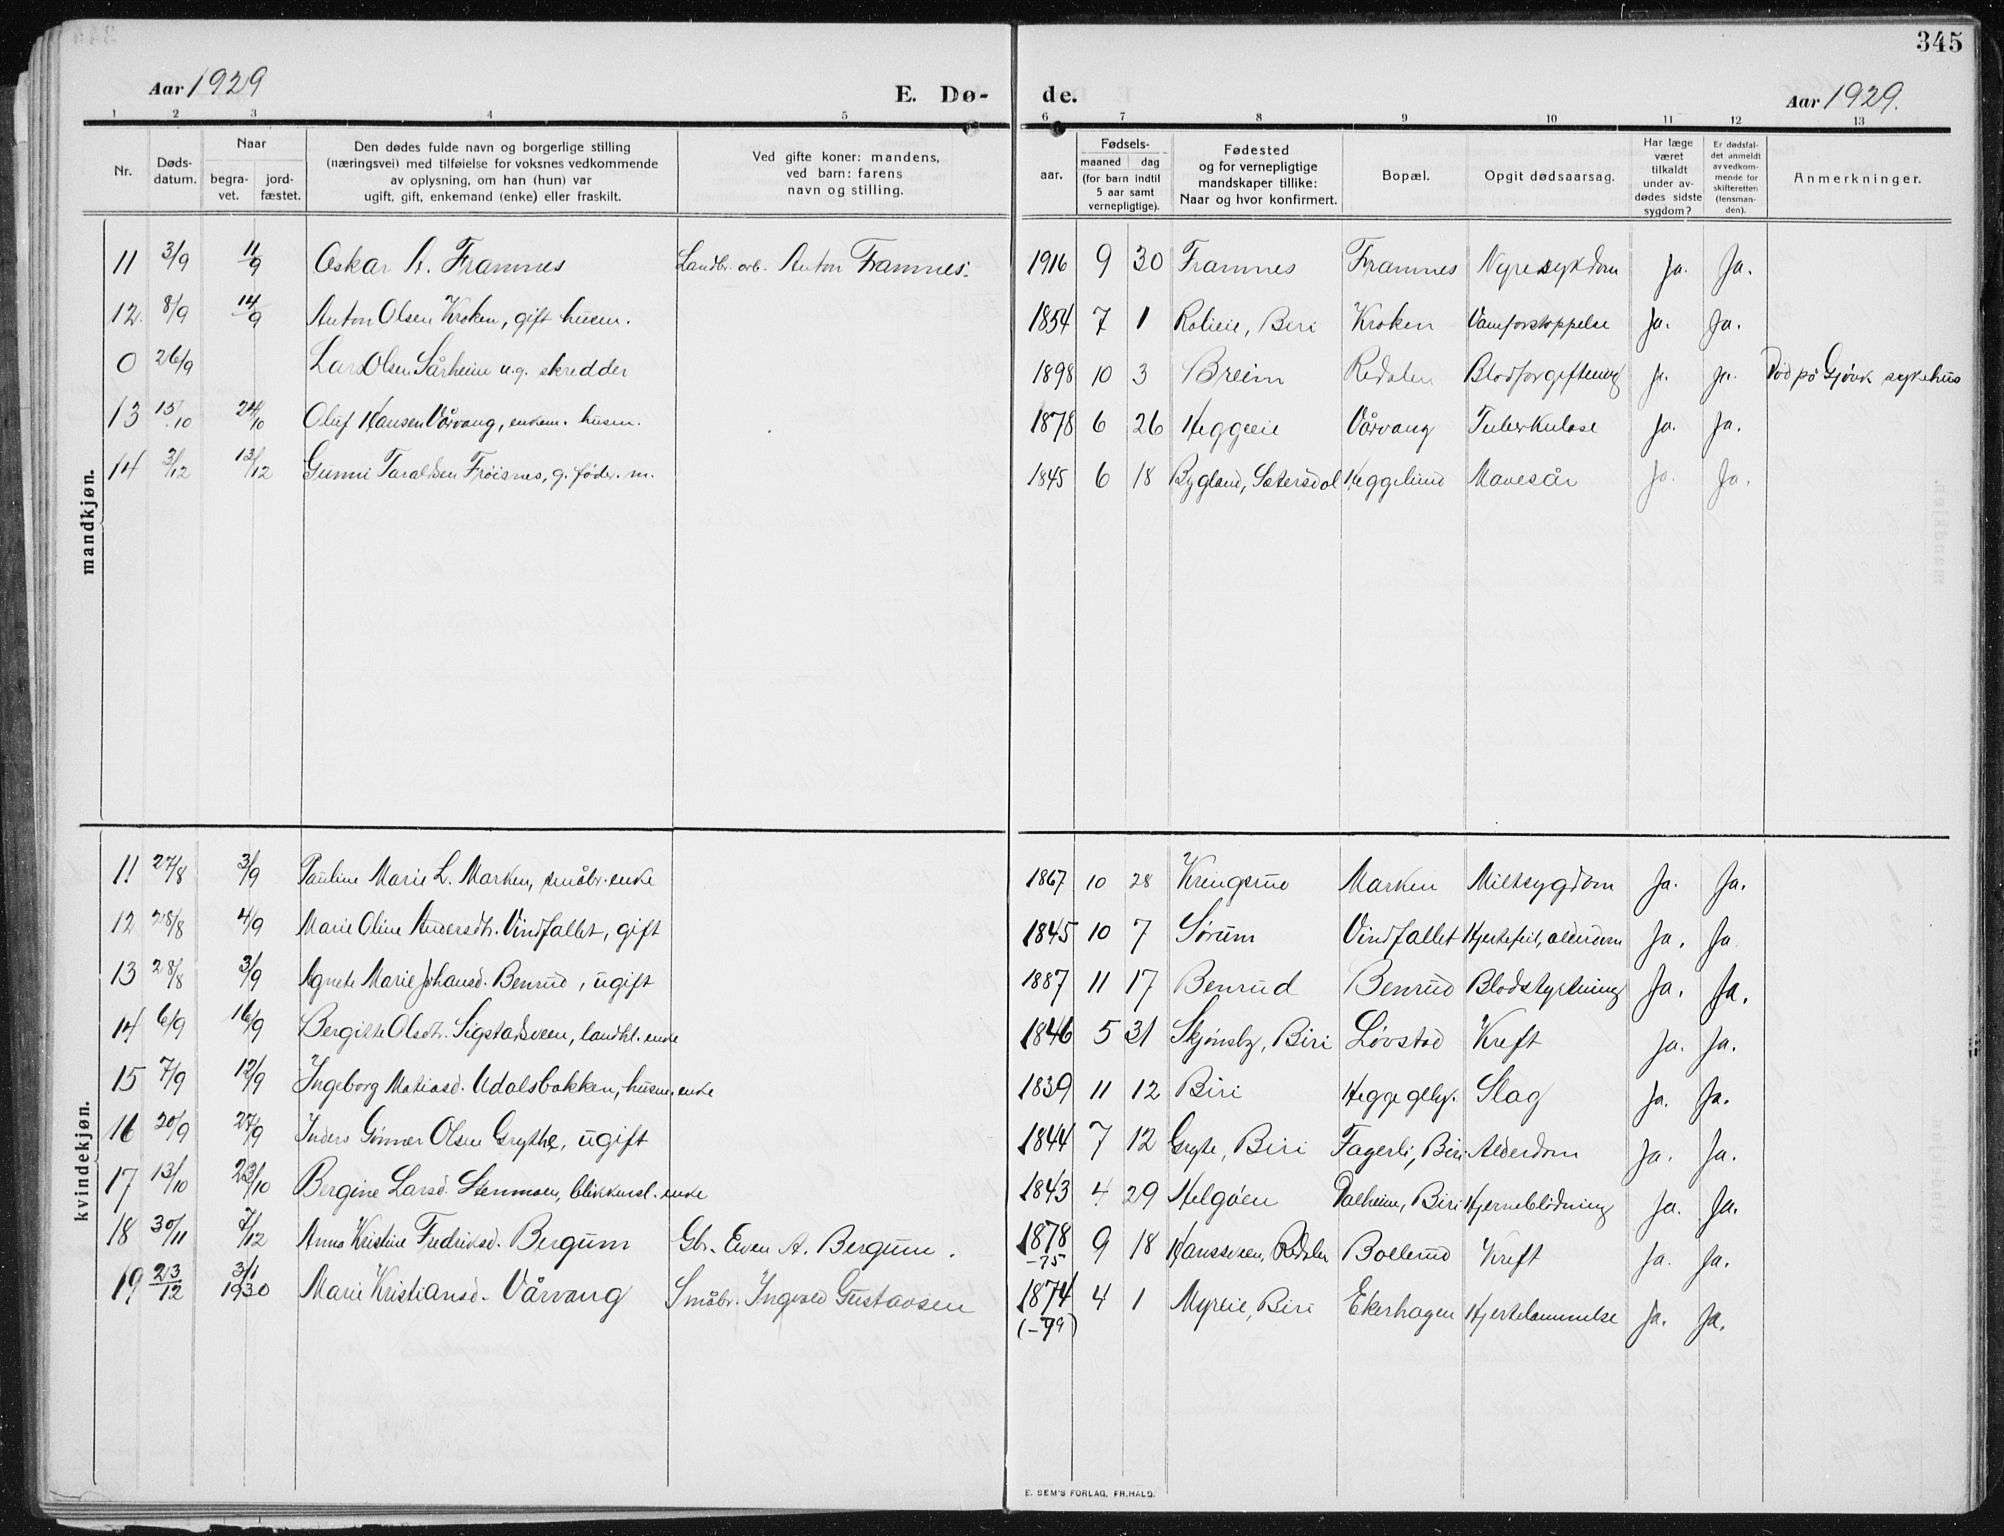 345
Aar 1929 E. Dø- de. Aar 1929.
1 2 3 4 5 6 7 8 9 10 11 12 13
Nr. Døds-datum. Naar begra-vet. jord-fæstet. Den dødes fulde navn og borgerlige stilling (næringsvei) med tilføielse for voksnes vedkommende av oplysning, om han (hun) var ugift, gift, enkemand (enke) eller fraskilt. Ved gifte koner: mandens, ved barn: farens navn og stilling. aar. Fødsels- maaned dag (for barn indtil 5 aar samt vernepligtige). Fødested og for vernepligtige mandskaper tillike: Naar og hvor konfirmert. Bopæl. Opgit dødsaarsag. Har læge været tilkaldt under av-dødes sidste sygdom? Er dødsfal-det anmeldt av vedkom-mende for skifteretten (lensman-den). Anmerkninger.
mandkjøn.
11 3/9 11/9 Oskar A. Framnes Landbr. arb. Anton Framnes. 1916 9 30 Framnes Framnes Nyresykdom Ja. Ja.
12. 8/9 14/9 Anton Olsen Kroken, gift husm. 1854 7 1 Rolieie, Biri Kroken Vamforstoppelse Ja. Ja.
0 26/9 Lars Olsen Sårheim u.g. skredder 1898 10 3 Breim Redalen Blodforgiftning ja. ja. Död på Gjövik sykehus
13 15/10 24/10 Oluf Hansen Vårvang, enkem. husm. 1878 6 26 Heggeeie Vårvang Tuberkulose Ja. Ja.
14 3/12 13/12 Gunni Taraldsen Frøisnes, g. föder. m. 1845 6 18 Bygland, Sætersdal Heggelund Mavesår Ja. Ja.
kvindekjøn.
11 27/8 3/9 Pauline Marie L. Marken, småbr. enke 1867 10 28 Kringsrud Marken Miltsygdom Ja. Ja.
12 28/8 4/9 Marie Oline Andersdtr. Vindfallet, gift 1845 10 7 Sørum Vindfallet Hjertefeil, alderdom Ja. Ja
13 28/8 3/9 Agnete Marie Johansd. Benrud, ugift 1887 11 17 Benrud Benrud Blodstyrtning Ja. Ja.
14 6/9 16/9 Bergitte Olsdtr. Sigstadsveen, landhl. enke 1846 5 31 Skjønsby, Biri Løvstad Kreft Ja. Ja.
15 7/9 12/9 Ingeborg Matiasd. Udalsbakken, husm. enke 1839 11 12 Biri Slag Ja. Ja.
16 20/9 27/9 Gunner Olsen Grythe, ugift 1844 7 12 Gryte, Biri Fagerli, Biri Alderdom Ja. Ja.
17 13/10 23/10 Bergine Larsd. Stenmoen, blikkensl. enke 1843 4 29 Helgøen Dalheim, Biri Hjerneblödning Ja. Ja.
18 30/11 7/12 Anna Kristine Fredriksd. Bergum Gbr. Even A. Bergum. 1878 -75 9 18 Hanssveen, Redalen Bollerud Kreft Ja. Ja.
19 23/12 3/1 1930 Marie Kristiansd. Vårvang Småbr. Ingvald Gustavsen 1874 4 1 Myreie, Biri Ekerhagen Hjertelammelse Ja. Ja.
E. SEM'S FORLAG, FR.HALD.